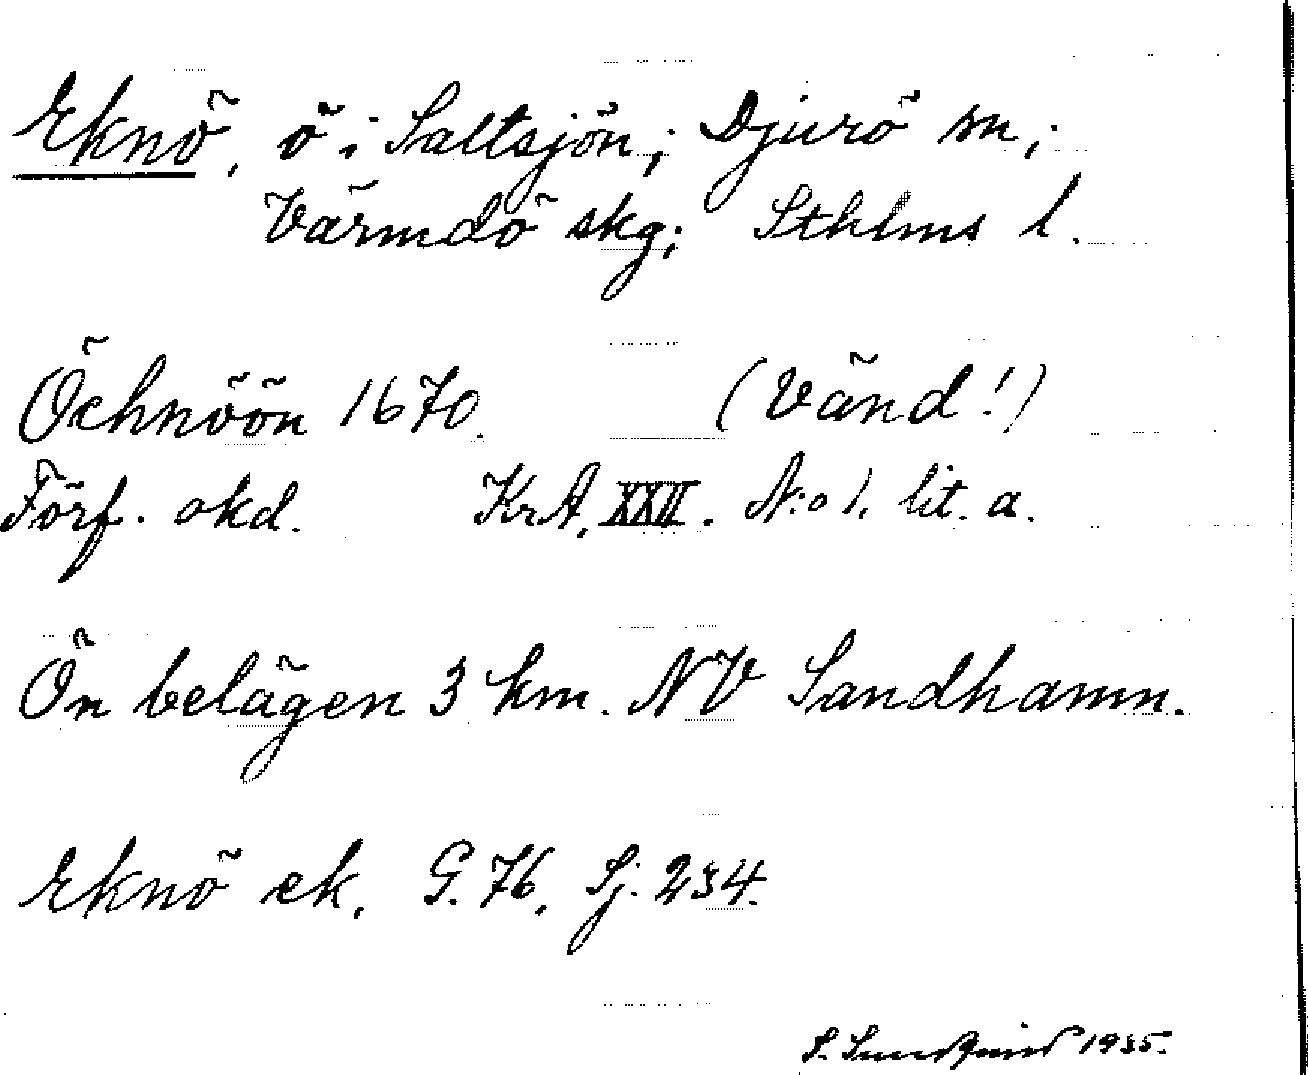 Eknö, ö i Saltsjön; Djurö sn,;
Värmdö skg; Sthlms l.
Öchnöön 1670. (Vänd!)
Förf. okd. KrA, XXII. N:o 1, lit. a.
Ön belägen 3 km. NV Sandhamn.
Eknö ek. G. 76, Sj. 234.
S. 1935.